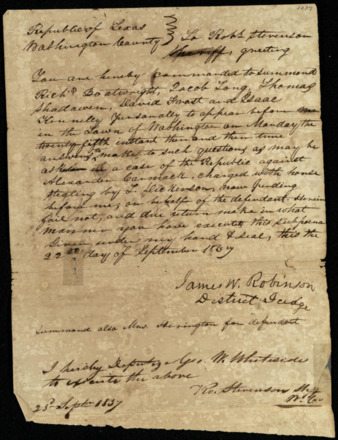 Republic of Texas
Washington County } To Robt Stevenson
Sheriff, greeting
You are hereby commanded to summond
Richd Boatwright, Jacob Long, Thomas
David Frost and Isaac
Kennelly Personally to appear before me
in the Town of Washington on Monday the
twenty fifth instant then and there true
answers to make to such questions as may be
asked in a case of the Republic against
Alexander Carmack, charged with horse
stealing by L. Dickerson, now pending
before me, on behalf of the defendant. Herein
fail not, and due return make in what
manner you have executed this Subpoena
Given under my hand & seal, this the
22nd day of September 1837
James W. Robinson
District Judge
Summond also Mrs. for defendant
I hereby Deputize Geo. W. Whiteside
to execute the above
Ro. Stevenson Shff
W. Co
23d Sept. 1837